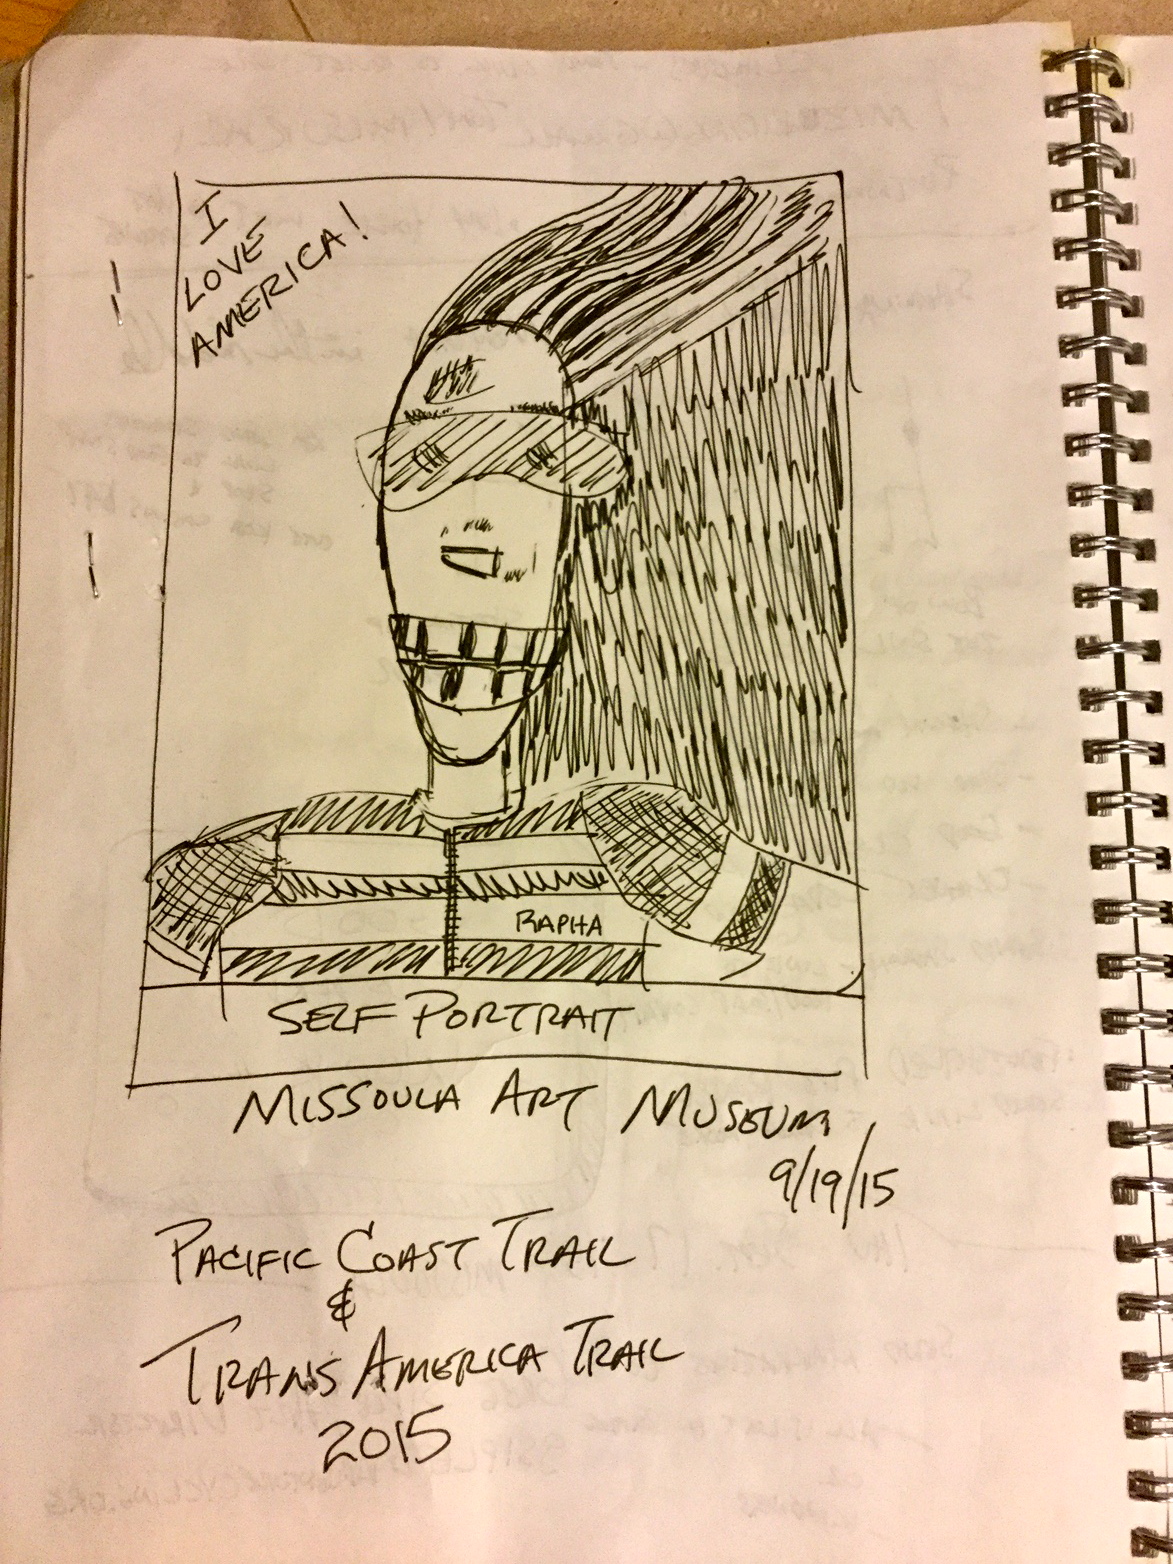 I
LOVE
AMERICA!
RAPHA
SELF PORTRAIT
MISSOULA ART MUSEUM
9/19/15
PACIFIC COAST TRAIL
&
TRANS AMERICA TRAIL
2015